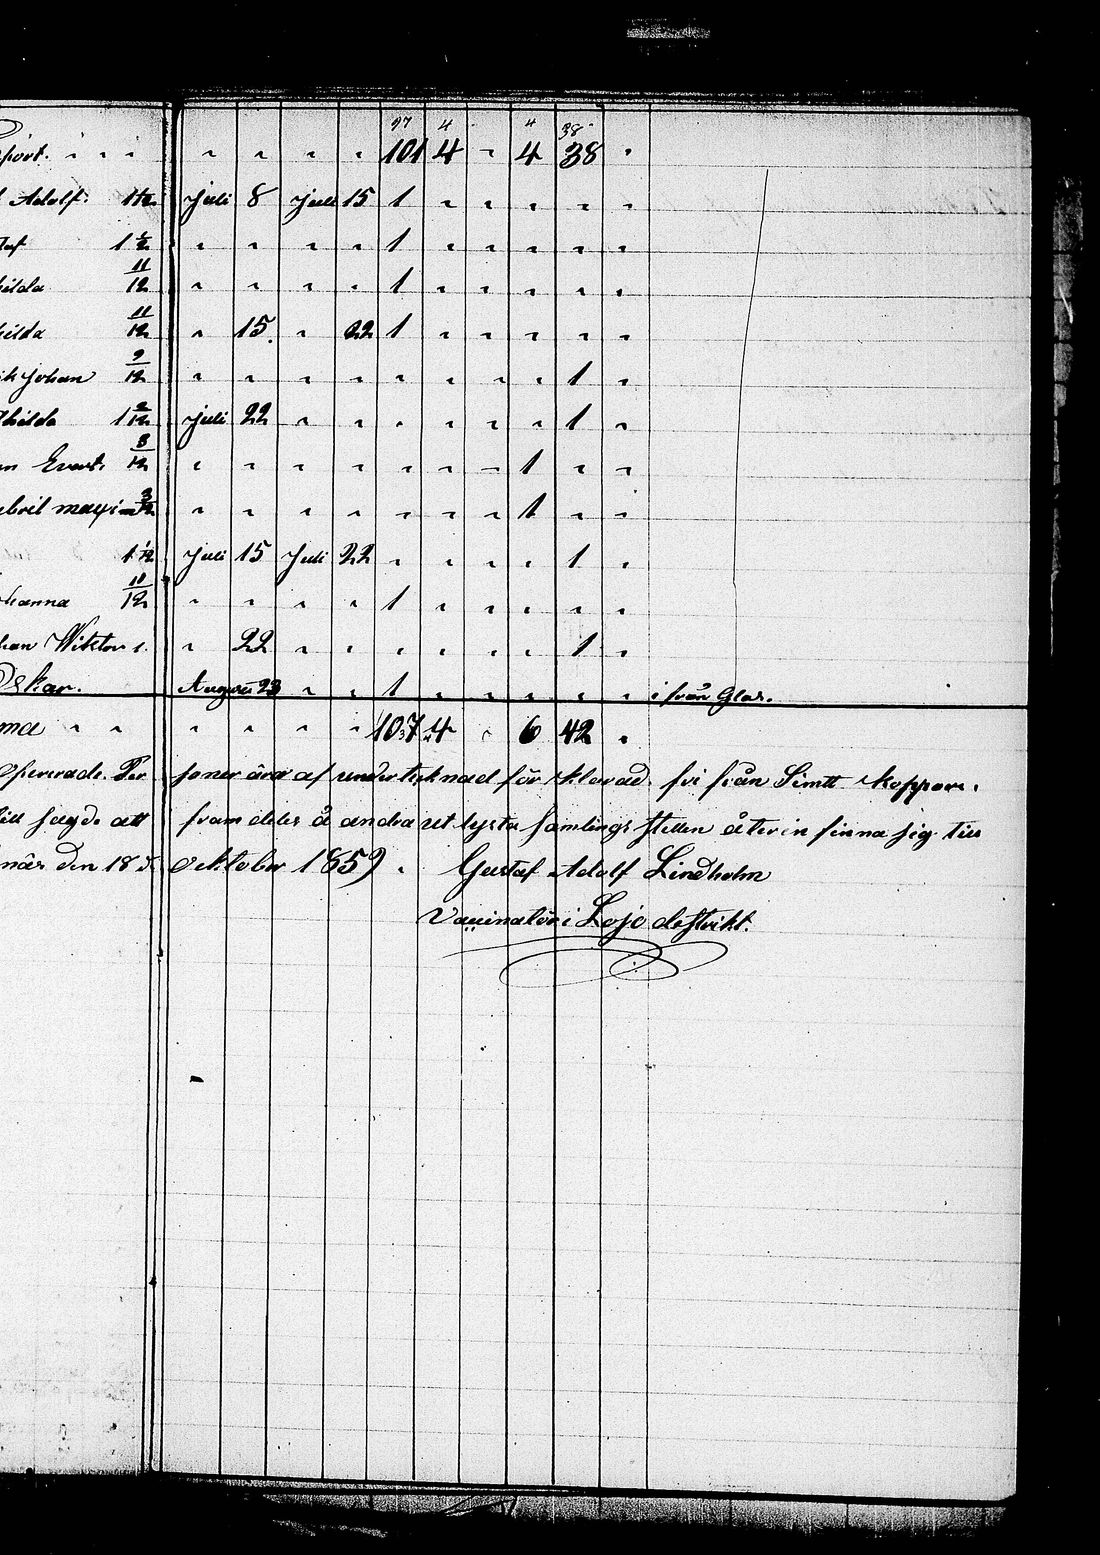 97 4 4 38
port. " " " " " " " 101 4 " 4 38 "
Adolf. 1 1/2 Juli 8 Juli 15 1 " " " " "
taf 1 1/2 " " " " 1 " " " " "
hilda 11/12 " " " " 1 " " " " "
hilda 11/12 " 15. " 22 1 " " " " "
ik Johan 9/12 " " " " " " " " 1 "
thilda 1 2/12 Juli 22 " " " " " " 1 "
an Evert. 8/12 " " " " " " " 1 " "
abril maxim 3/12 " " " " " " " 1 " "
1 1/12 Juli 15 Juli 22 " " " " 1 "
ohanna 10/12 " " " " 1 " " " " "
han Wiktor 1. " 22 " " " " " " 1 "
Oskar. August 23 " " 1 " " " " " ifrån Glos.
ma " " " " " " 107 4 " 6 42 "
Opererade Per soner äro af undertecknad för klarad fri från Smitt koppor.
till sagde att framdeles å andra ut lysta samlings stellen återin finna sig till
näs den 18 d. October 1859. Gustaf Adolf Lindholm
Vaccinatör i Lojo distrikt.